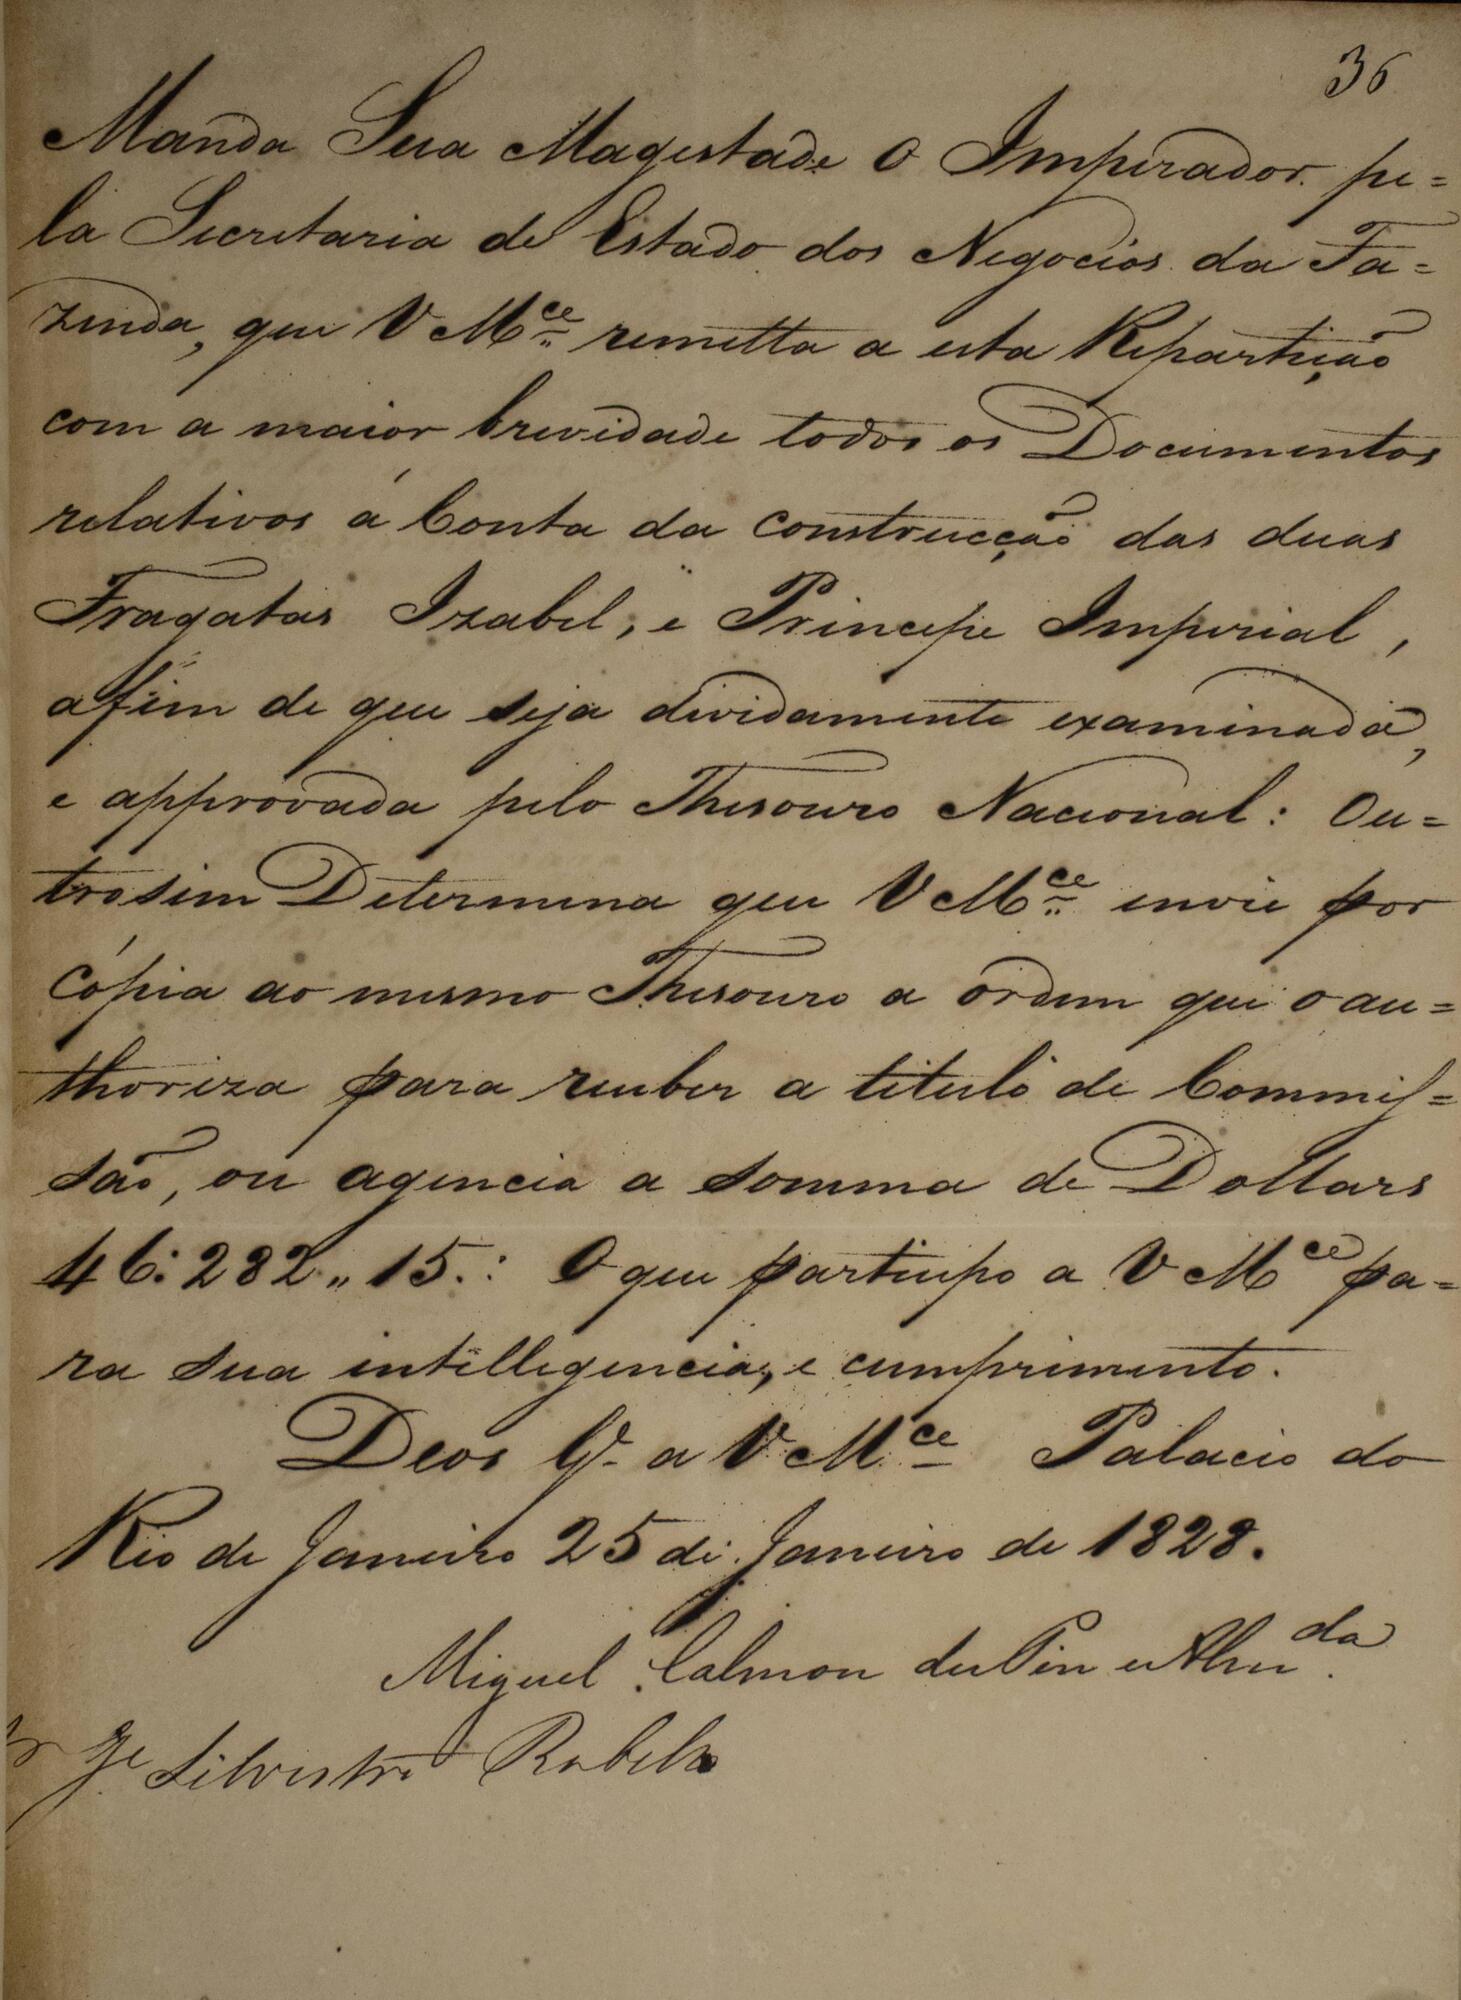 36
Manda Sua Magestade O Imperador pe=
la Secretaria de Estado dos Negocios da Fa=
zenda, que V M.ce remetta a esta Repartição
com a maior brevidade todos os Documentos
relativos á Conta da construcção das duas
Fragatas Izabel, e Principe Imperial,
afim de que seja dividamente examinada,
e approvada pelo Thesouro Nacional: Ou=
trosim Determina que V M.ce envie por
cópia ao mesmo Thesouro a ordem que o au=
thoriza para receber a titulo de Commis=
são, ou agencia a somma de Dollars
46:282,,15.: O que participo a V M.ce pa=
ra sua intelligencia, e cumprimento.
Deos G.e a V M.ce Palacio do
Rio de Janeiro 25 de Janeiro de 1828.
Miguel Calmon du Pin e Alm.da
Je Silvestre Rebello